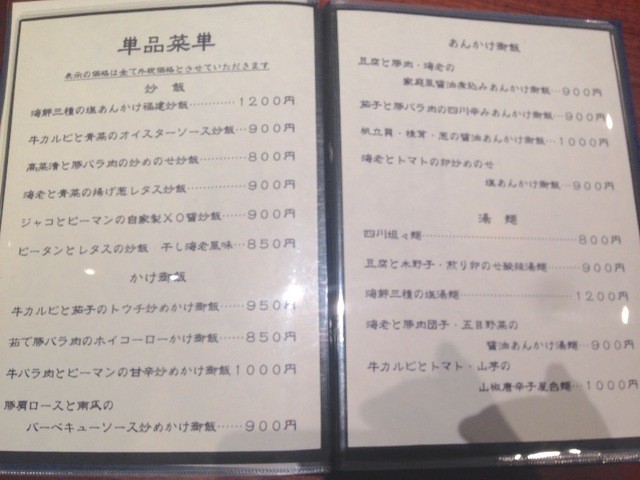 単品菜単
表示の価格は全て外税価格とさせていただきます
炒 飯
海鮮三種の塩あんかけ福建炒飯…………1200円
牛カルビと青菜のオイスターソース炒飯…900円
高菜漬と豚バラ肉の炒めのせ炒飯……800円
海老と青菜の揚げ葱レタス炒飯………900円
ジャコとピーマンの自家製XO醤炒飯……900円
ピータンとレタスの炒飯 干し海老風味…850円
かけ御飯
牛カルビと茄子のトウチ炒めかけ御飯……950円
茹で豚バラ肉のホイコーローかけ御飯……850円
牛バラ肉とピーマンの甘辛炒めかけ御飯1000円
豚肩ロースと南瓜の
バーベキューソース炒めかけ御飯……900円
あんかけ御飯
豆腐と豚肉・海老の
家庭風醤油煮込みあんかけ御飯…900円
茄子と豚バラ肉の四川辛みあんかけ御飯…900円
帆立貝・椎茸・葱の醤油あんかけ御飯…1000円
海老とトマトの卵炒めのせ
塩あんかけ御飯…900円
湯 麺
四川坦々麺……………………………800円
豆腐と木野子・煎り卵のせ酸辣湯麺………900円
海鮮三種の塩湯麺……………………1200円
海老と豚肉団子・五目野菜の
醤油あんかけ湯麺…900円
牛カルビとトマト・山芋の
山椒唐辛子風色麺…1000円